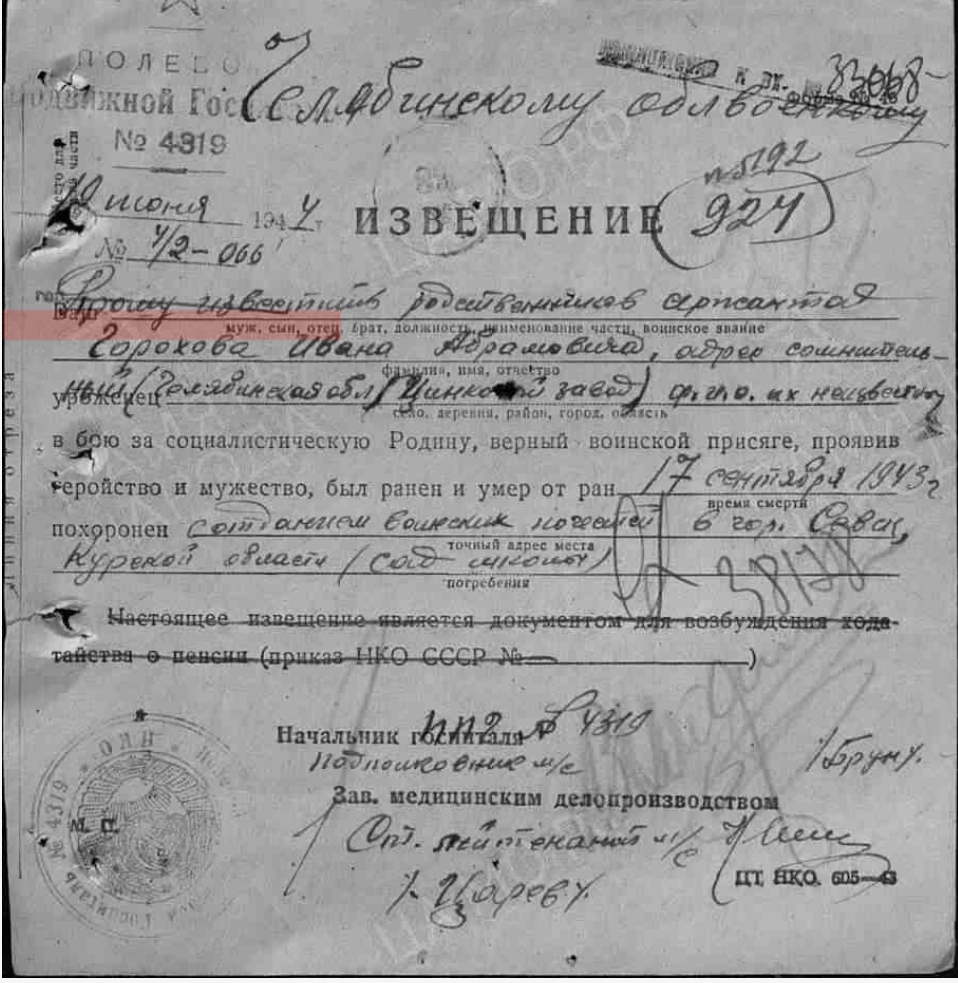 ПОЛЕВО
Подвижной Госп
№ 4319
Челябинскому облвоенкому
к вх. № 33068
п 5192
10 июня 1944 г.
№ 4/2-066
ИЗВЕЩЕНИЕ
924
Прошу известить родственников сержанта
муж, сын, отец, брат, должность, наименование части, воинское звание
Горохова Ивана Абрамовича, адрес сомнитель-
фамилия, имя, отчество
ный (Челябинская обл. Цинковый завод) ф.и.о. их неизвестны
уроженец
село, деревня, район, город, область
в бою за социалистическую Родину, верный воинской присяге, проявив
геройство и мужество, был ранен и умер от ран 17 сентября 1943 г
время смерти
похоронен с отданием воинских почестей в гор. Севск,
точный адрес места
Курской области (сад школы)
погребения
Настоящее извещение является документом для возбуждения хода-
тайства о пенсии (приказ НКО СССР № )
Начальник госпиталя ППГ № 4319
Подполковник м/с /Брун/.
Зав. медицинским делопроизводством
Ст. лейтенант м/с
/Царев/.
М. П.
ЦТ НКО. 605—43
№ 4319
Линия отреза